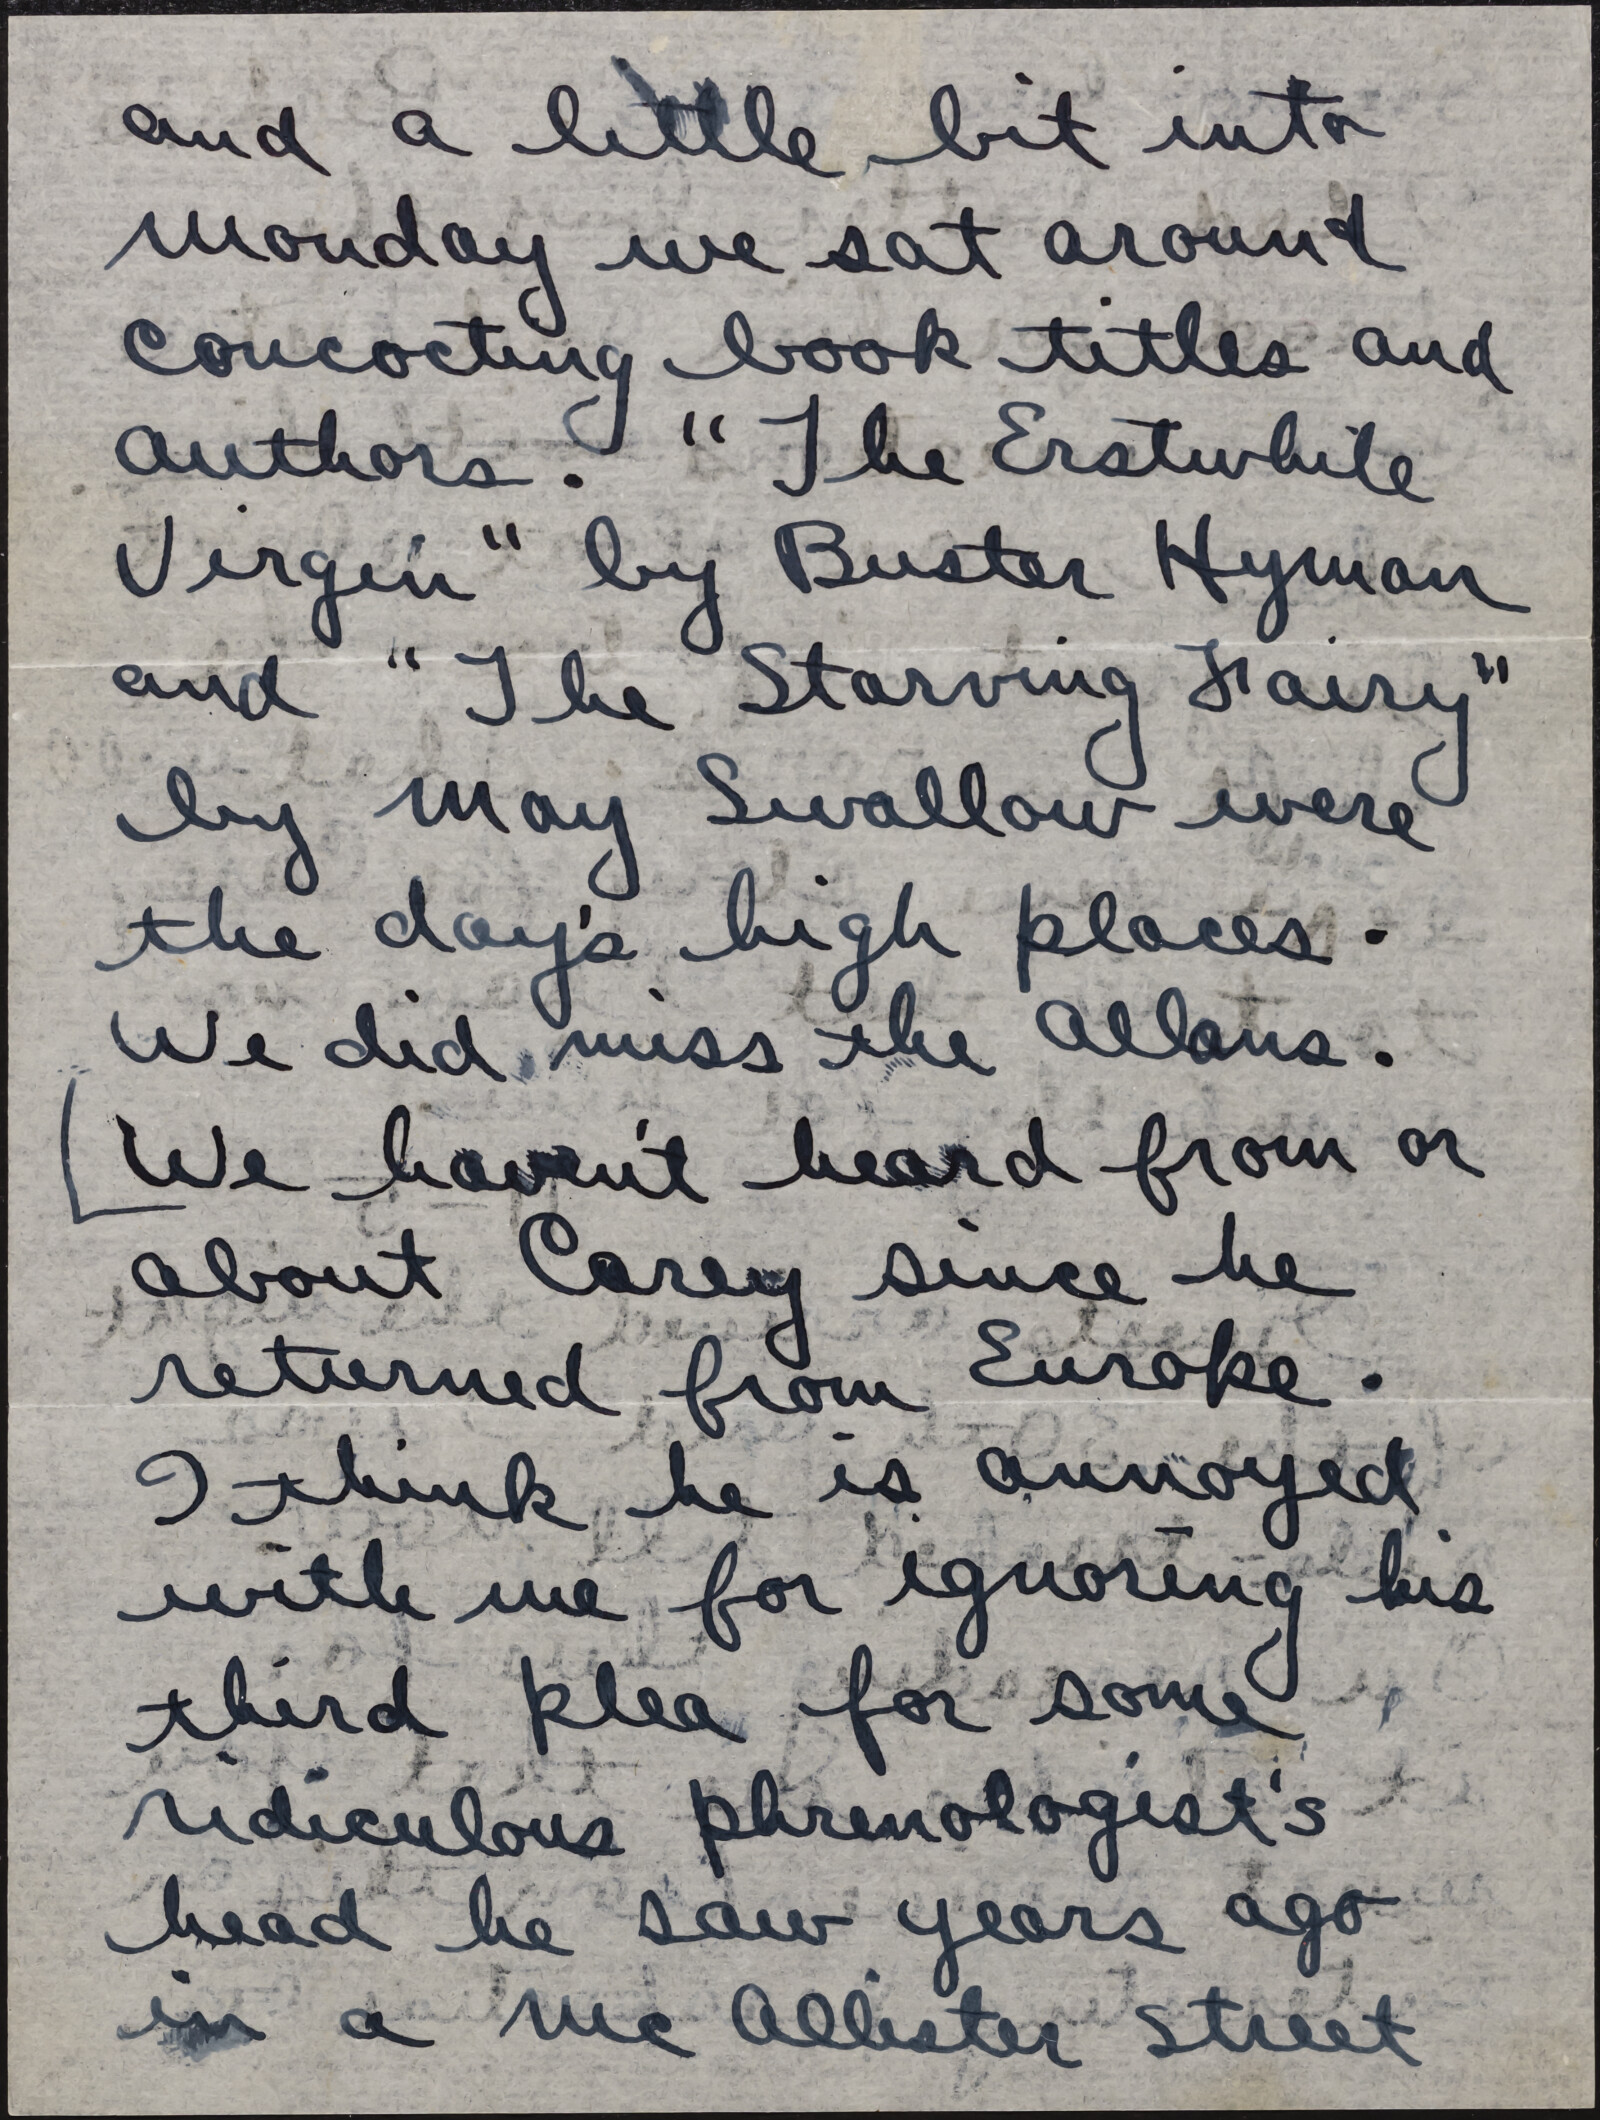 and a little bit into
Monday we sat around
concocting book titles and
authors. "The Erstwhile
Virgin" by Buster Hyman
and "The Starving Fairy"
by May Swallow were
the day's high places.
We did miss the Allans.
[We haven't heard from or
about Carey since he
returned from Europe.
I think he is annoyed
with me for ignoring his
third plea for some
ridiculous phrenologist's
head he saw years ago
in a McAllister Street